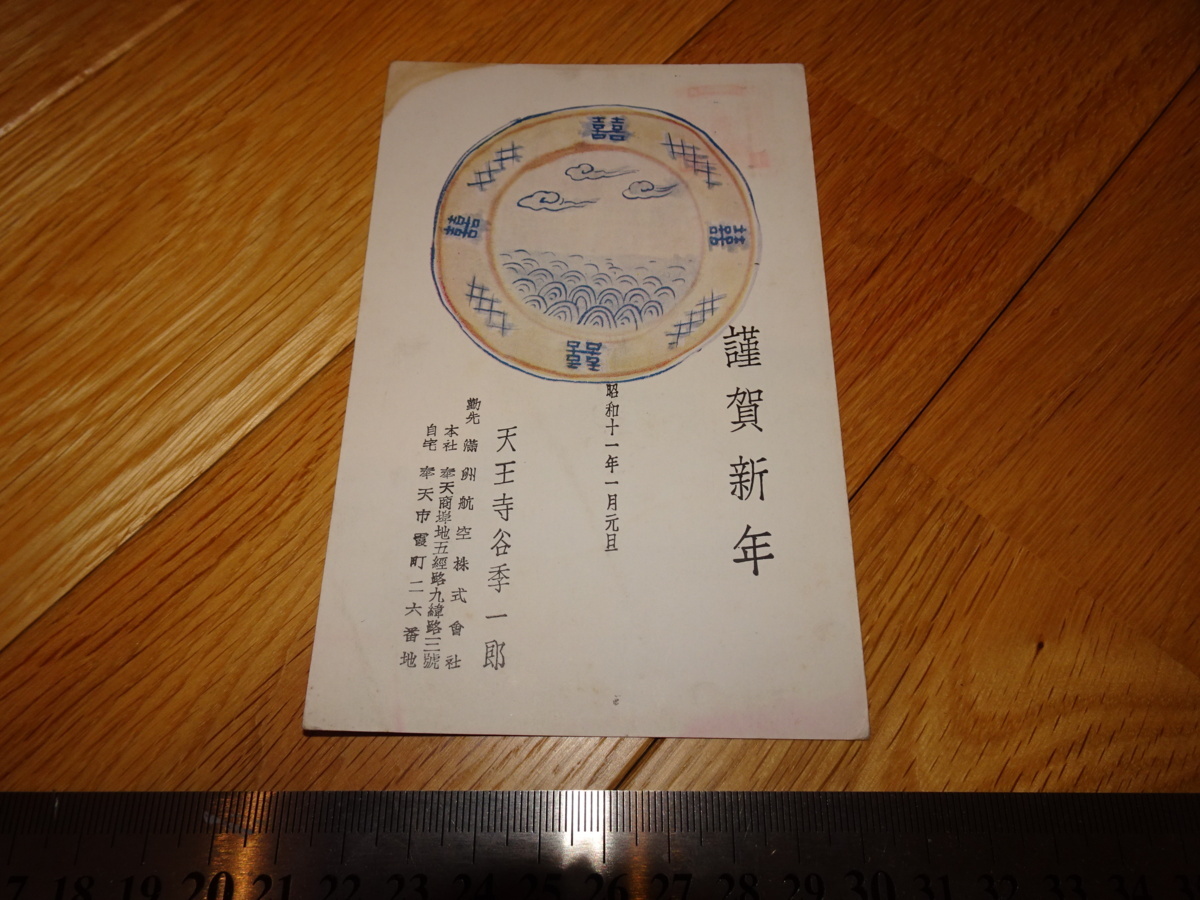 謹賀新年
昭和十一年一月元旦
天王寺谷季一郎
勤先 滿洲航空株式會社
本社 奉天商埠地五經路九緯路三號
自宅 奉天市霞町二六番地
囍
囍
囍
囍
17 18 19 20 21 22 23 24 25 26 27 28 29 30 31 32 33 34 35